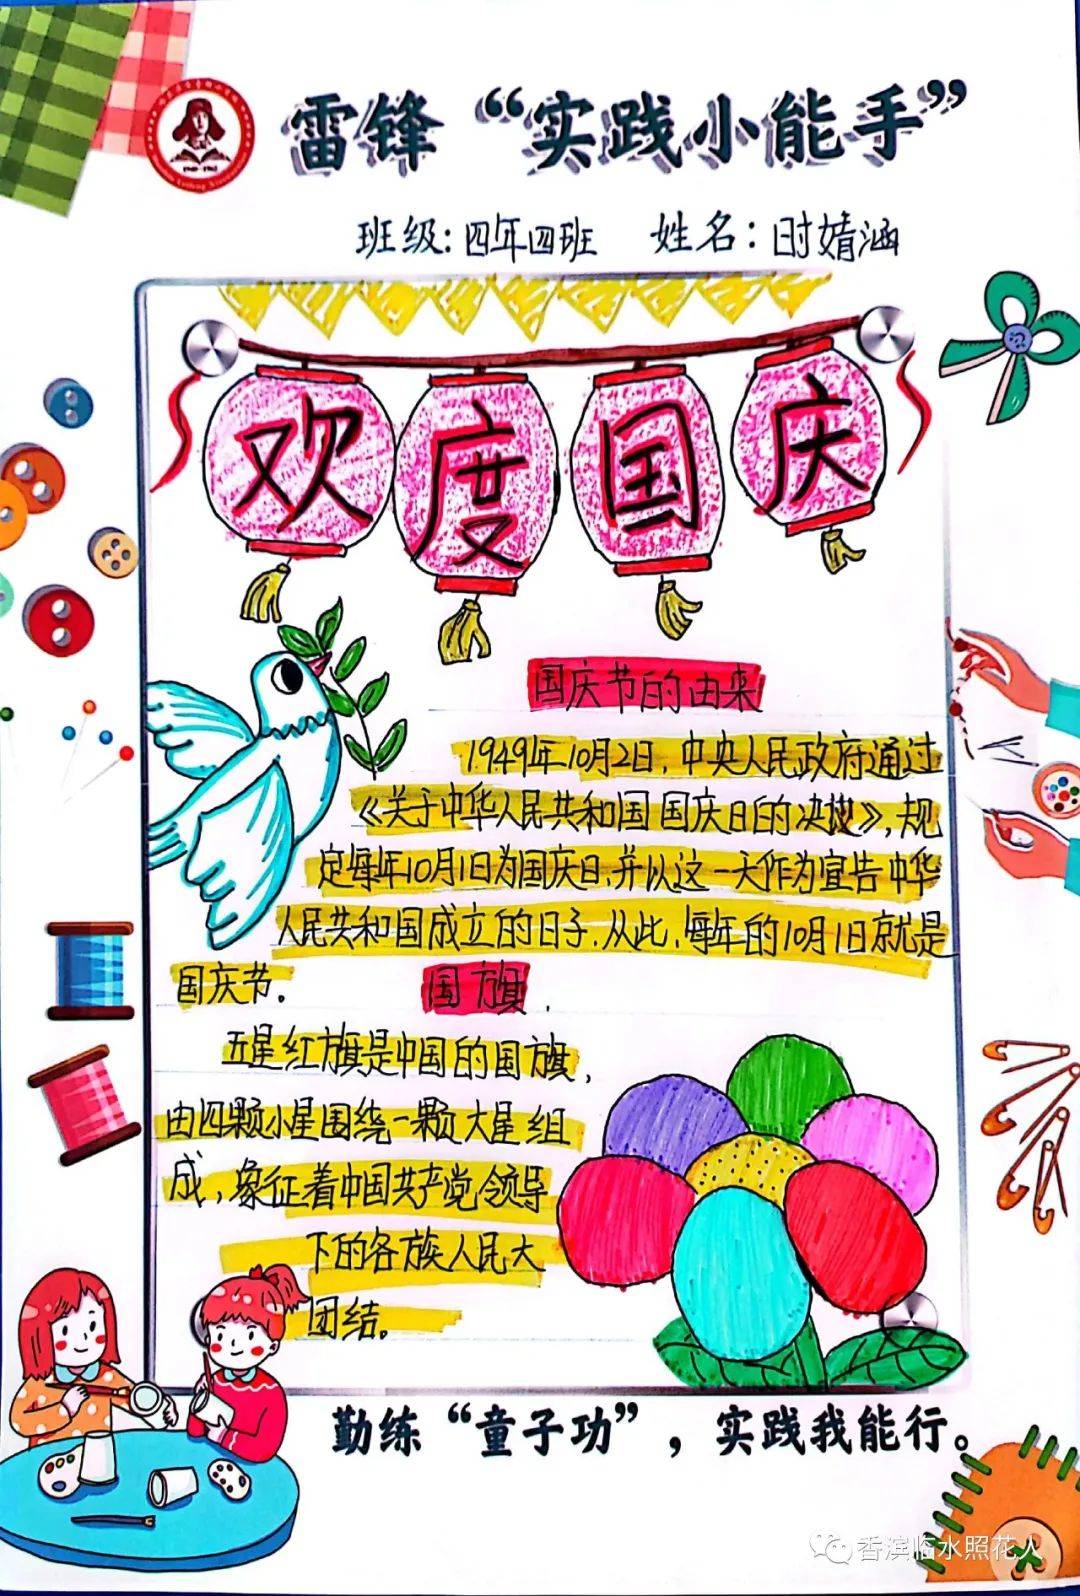 雷锋“实践小能手”
班级：四年四班 姓名：时婧涵
欢度国庆
国庆节的由来
1949年10月2日，中央人民政府通过
《关于中华人民共和国国庆日的决议》，规
定每年10月1日为国庆日，并以这一天作为宣告中华
人民共和国成立的日子，从此，每年的10月1日就是
国庆节。
国旗
五星红旗是中国的国旗，
由四颗小星围绕一颗大星组
成，象征着中国共产党领导
下的各族人民大
团结。
勤练“童子功”，实践我能行。
香滨临水照花人